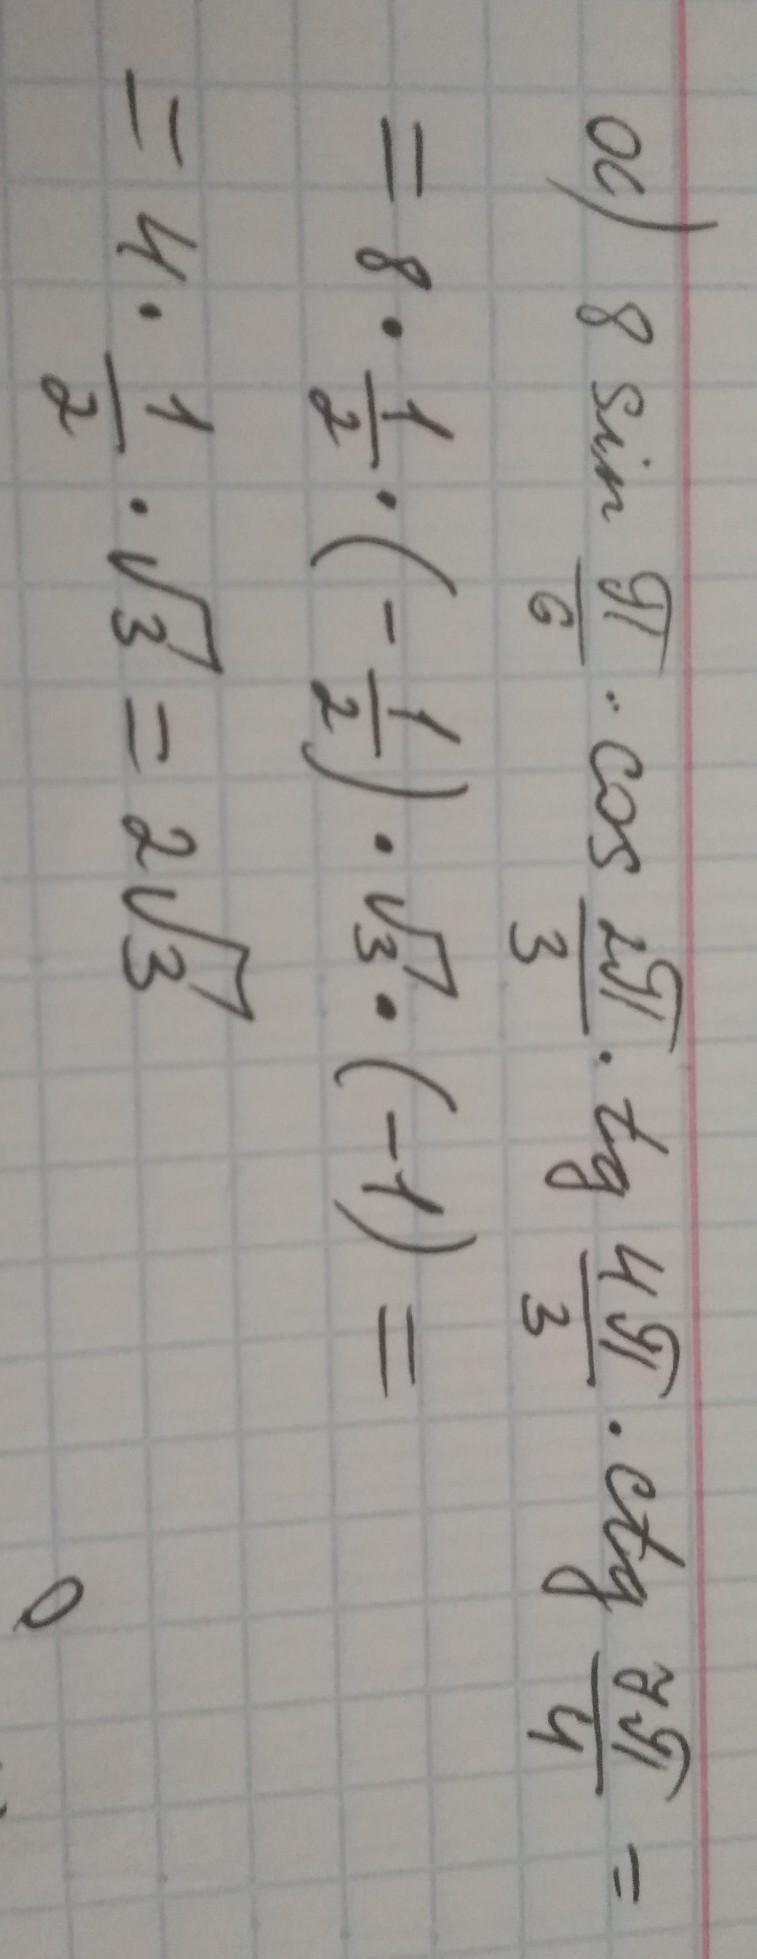 а) 8 sin π/6 · cos 2π/3 · tg 4π/3 · ctg 7π/4 =
= 8 · 1/2 · (- 1/2) · √3 · (-1) =
= 4 · 1/2 · √3 = 2√3